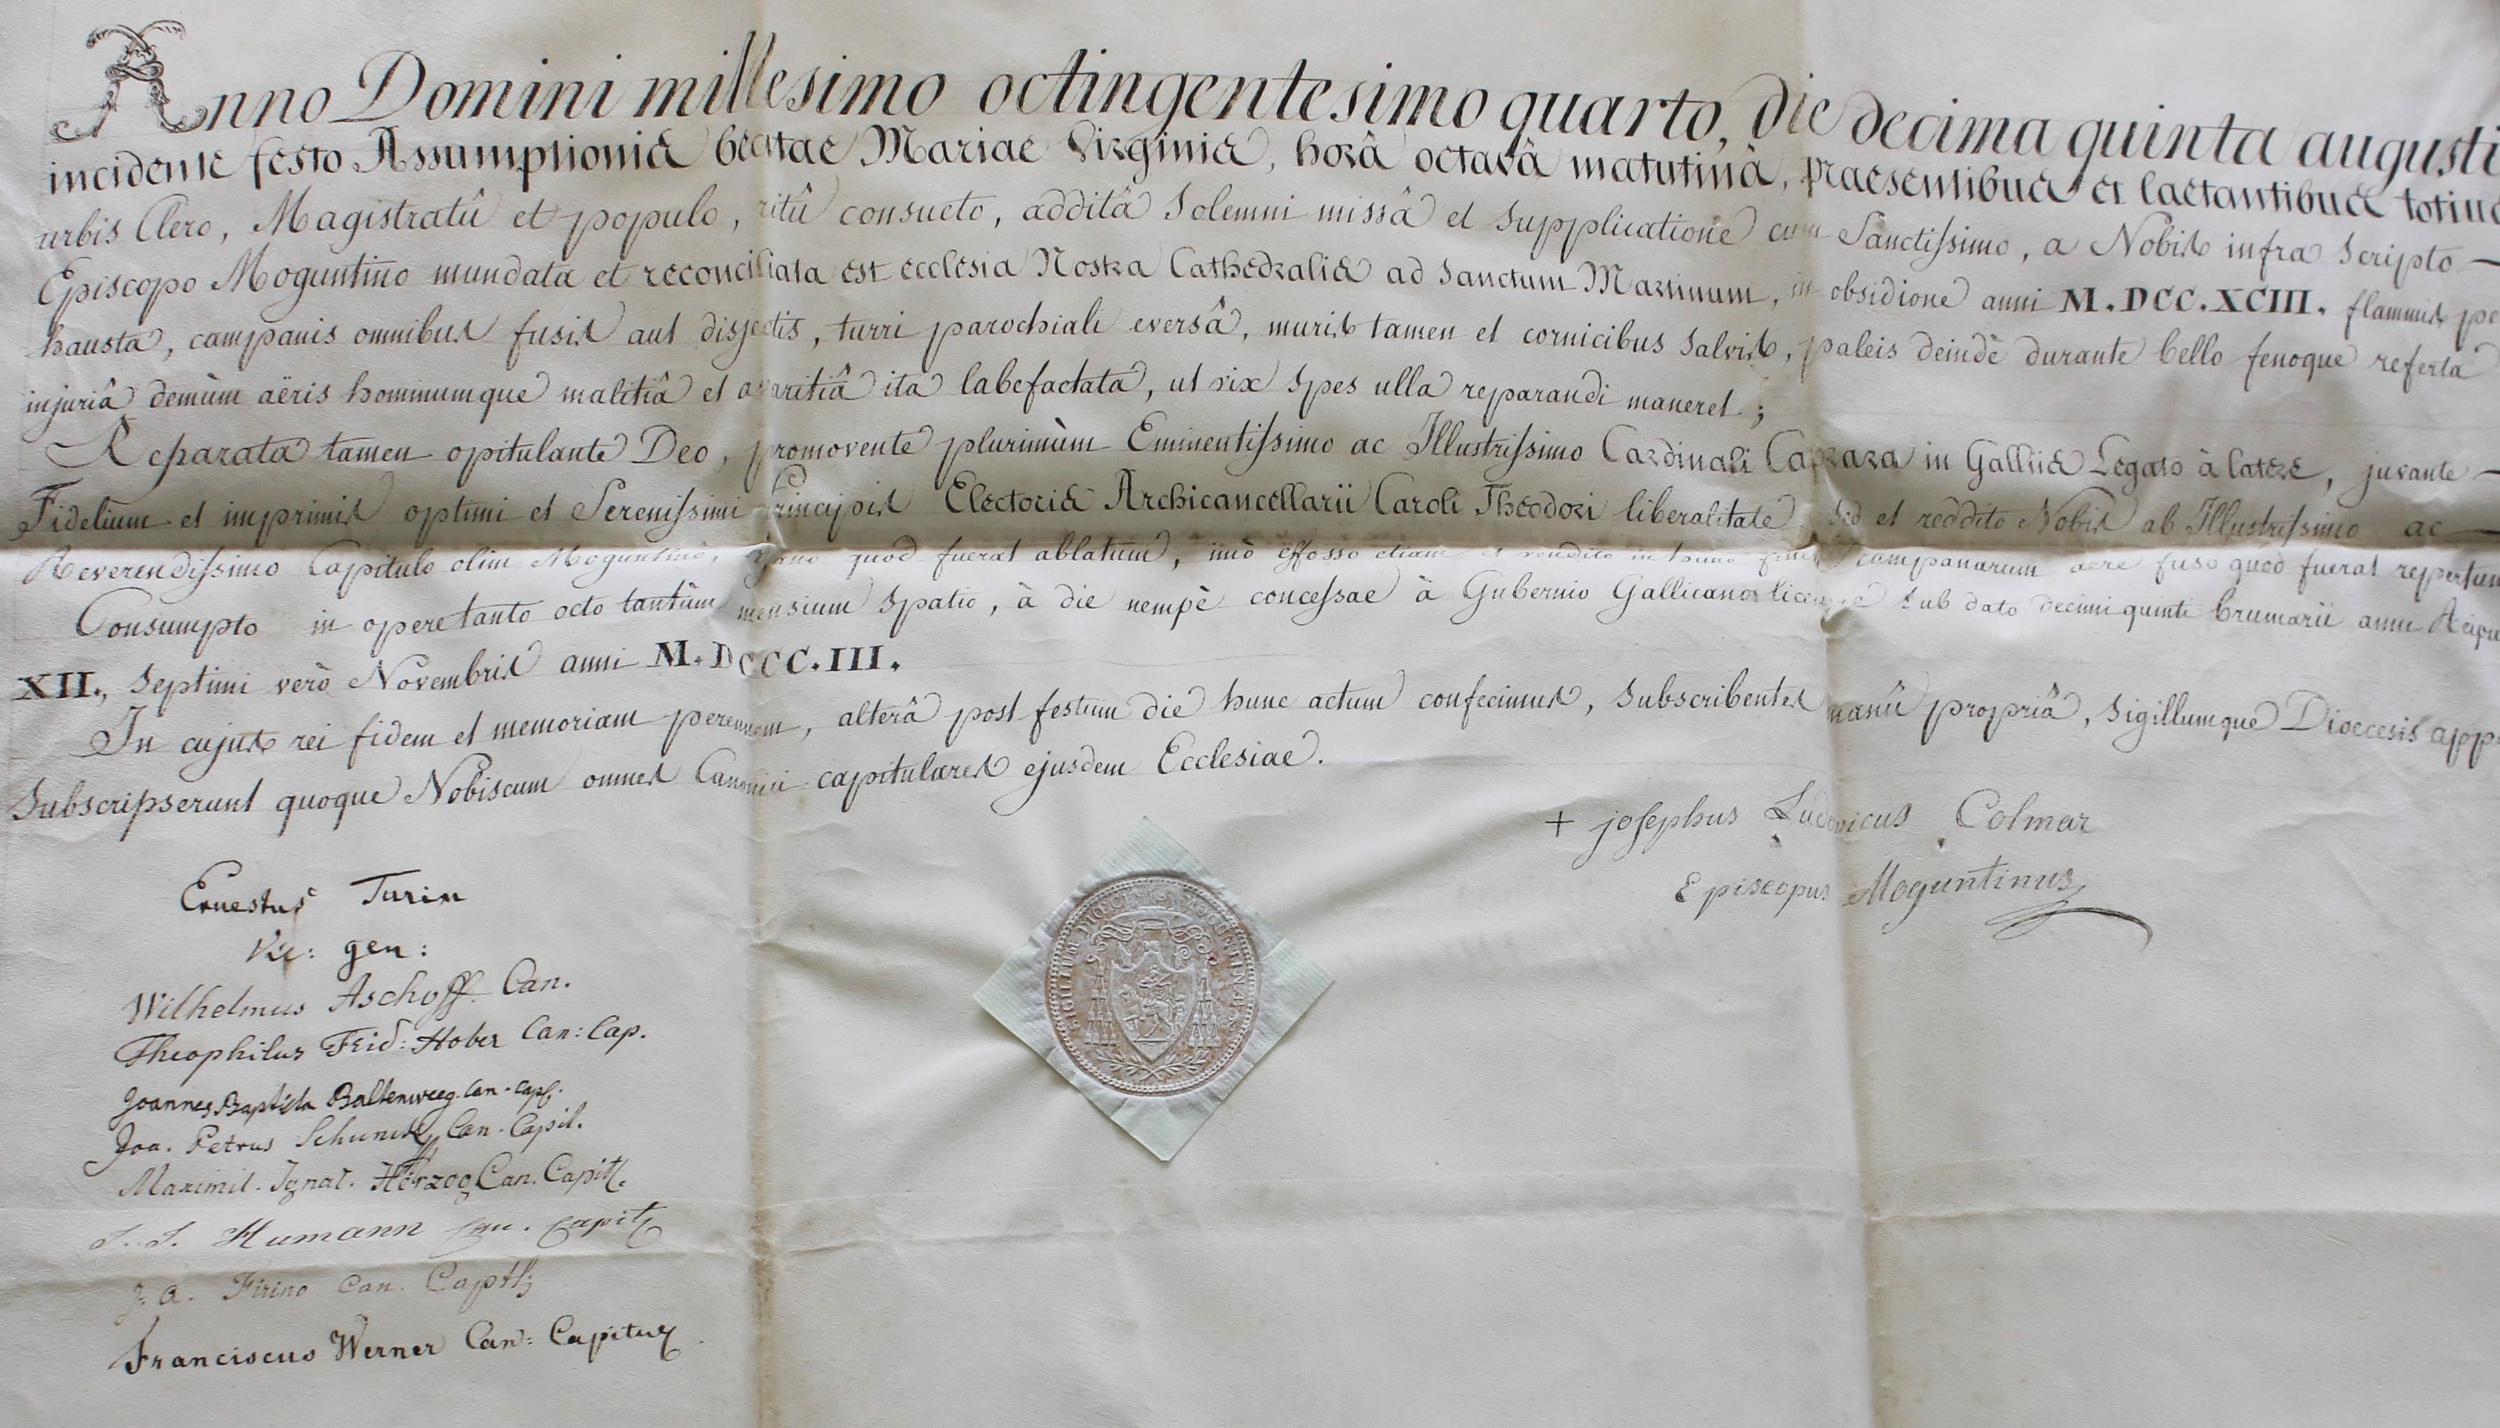 Anno Domini millesimo octingentesimo quarto, die decima quinta augusti
incidente festo Assumptionis beatae Mariae Virginis, horâ octavâ matutinâ, praesentibus et laetantibus totius
urbis Clero, Magistratû et populo, ritû consueto, additâ solemni missâ et supplicatione cum Sanctissimo, a Nobis infra scripto —
Episcopo Moguntino mundata et reconciliata est ecclesia Nostra Cathedralis ad Sanctum Martinum, in obsidione anni M.DCC.XCIII. flammis pe
hausta, campanis omnibus fusis aut disjectis, turri parochiali eversâ, muris tamen et cornicibus salvis, paleis deindè durante bello fenoque referta
injuriâ demùm aëris hominumque malitiâ et avaritiâ ita labefactata, ut vix spes ulla reparandi maneret;
Reparata tamen opitulante Deo, promovente plurimùm Eminentissimo ac Illustrissimo Cardinali Caprara in Galliis Legato à latere, juvante —
Fidelium et imprimis optimi et Serenissimi Principis Electoris Archicancellarii Caroli Theodori liberalitate, sed et reddito Nobis ab Illustrissimo ac —
Reverendissimo Capitulo olim Moguntino, quod fuerat ablatum, imò effosso etiam et vendito in hunc finem campanarum aere fuso quod fuerat repertum
Consumpto in opere tanto octo tantùm mensium spatio, à die nempè concessae à Gubernio Gallicano licentiae sub dato decimi quinti brumarii anni Reipu
XII., septimi verò Novembris anni M.DCCC.III.
In cujus rei fidem et memoriam perennem, alterâ post festum die hunc actum confecimus, subscribentes manû propriâ, sigillumque Dioecesis app
Subscripserunt quoque Nobiscum omnes Canonici capitulares ejusdem Ecclesiae.
+ josephus Ludovicus Colmar
Episcopus Moguntinus
SIGILLUM DIOECESIS MOGUNTINAE
Ernestus Turin
Vic: gen:
Wilhelmus Aschoff Can.
Theophilus Frid: Hober Can: Cap.
Joannes Baptista Baltenweeg Can. cap.
Joa. Petrus Schunck Can. Capit.
Maximil. Ignat. Herzog Can. Capit.
J. J. Humann Can. Capit
J. A. Firino Can. Capit
Franciscus Werner Can: Capitul